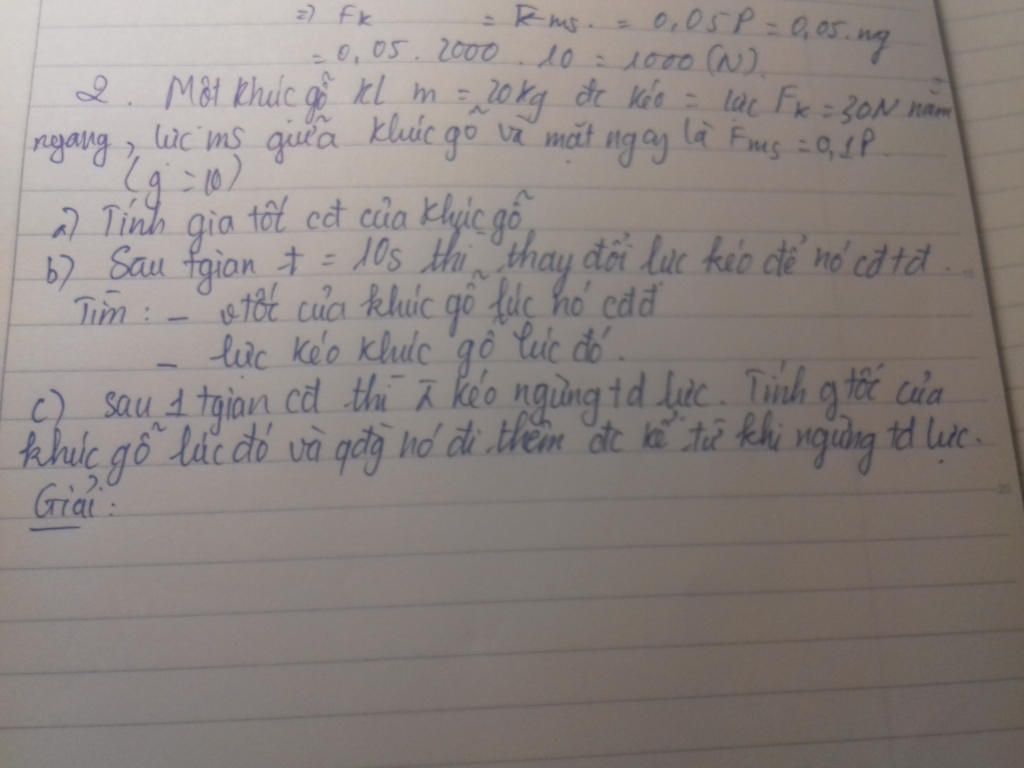 =) Fk = Fms. = 0,05P = 0,05.mg
= 0,05. 2000 .10 = 1000 (N).
2. Một khúc gỗ kl m = 20kg đc kéo = lực Fk = 30N nằm
ngang, lực ms giữa khúc gỗ và mặt ngay là Fms = 0,1P.
(g = 10)
a) Tính gia tốc cđ của khúc gỗ
b) Sau tgian t = 10s thì thay đổi lực kéo để nó cđtđ.
Tìm: - vtốc của khúc gỗ lúc nó cđđ
- lực kéo khúc gỗ lúc đó.
c) sau 1 tgian cđ thì kéo ngừng td lực. Tính gtốc của
khúc gỗ lúc đó và qđg nó đi thêm đc kể từ khi ngừng td lực.
Giải: